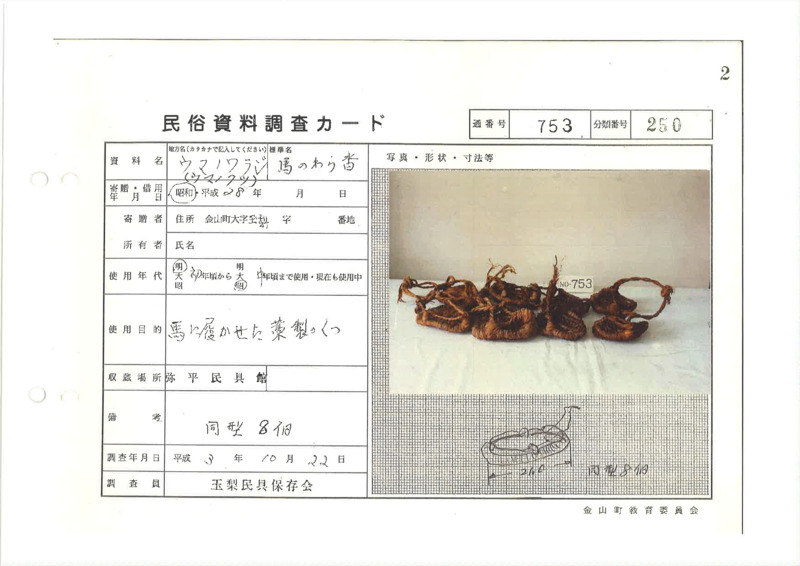 2
民俗資料調査カード
通番号 753 分類番号 250
資料名 地方名(カタカナで記入してください) ウマノワラジ (ウマノクツ) 標準名 馬のわら沓
写真・形状・寸法等
寄贈・借用年月日 昭和・平成 28年 月 日
寄贈者 住所 金山町大字玉梨 字 番地
所有者 氏名
使用年代 明 天 昭 初年頃から 明 大 昭 中年頃まで使用・現在も使用中
使用目的 馬に履かせた藁製のくつ
収蔵場所 弥平民具館
備考 同型 8個
調査年月日 平成 3年 10月 22日
調査員 玉梨民具保存会
NO-753
240
同型8個
金山町教育委員会